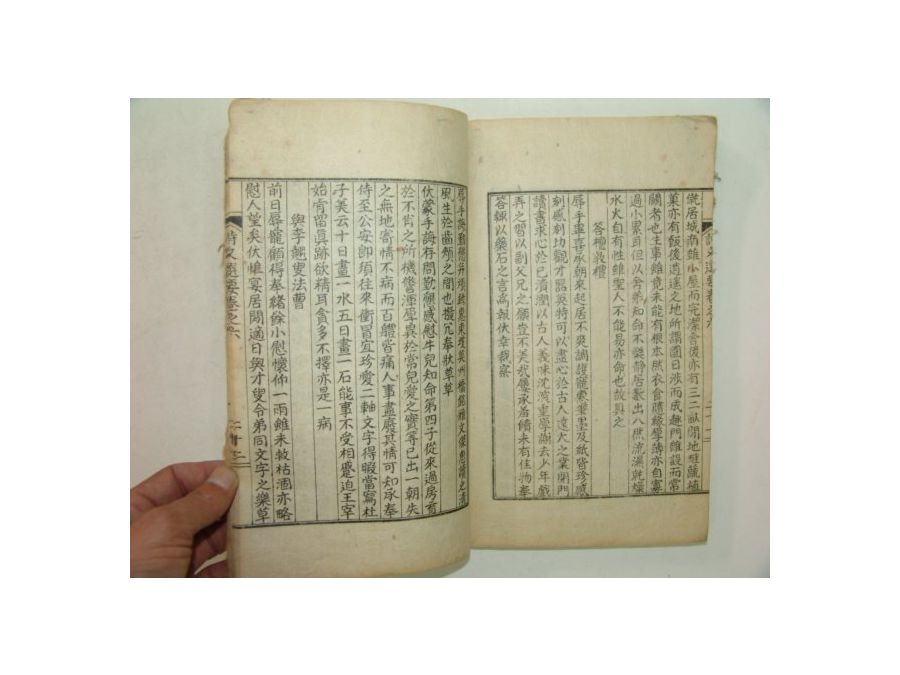 僦居城南雖小屋而完潔舍後亦有三二畝閒地種蔬植
菓亦有飯後逍遙之地所謂園日涉而成趣門雖設而常
關者也生事雖竟未能有根本然衣食隨緣厚薄亦自寡
過小累耳但以嘗弟知命不幾靜居數出入然流濕就燥
水火自有性雖聖人不能易亦命也故具之
答檀敦禮
辱手畢喜承朝來起居不爽調護寵索筆墨及紙皆珍感
刻感刻功觀才器英特可以盡心於古人遠大之業閉門
讀書求心於已漬潤以古人義味沈浸重學謝去少年戲
弄之習以副父兄之願豈不美哉屢承翰未有佳物奉
答輒以藥石之言為報伏幸裁察
詩文選要卷之六
辱手誨勤懇幷
風生於齒頰之間也撥冗奉狀草草
伏蒙手誨存問勤懇感慰牛兒知命第四子從來過房育
於不肖之所機警潭厚異於常兒愛之實等已出一朝失
之無地寄情不病而百體皆痛人事盡廢其情可知承奉
侍至公安卽須往來衝冒宜珍愛二軸文字得暇當寫杜
子美云十日畫一水五日畫一石能事不受相蹙迫王宰
始肯留眞跡欲精耳貪多不擇亦是一病
與李翹叟法曹
前日辱寵顧得奉緒餘小慰懷仰一雨雖未救枯涸亦略
慰人望矣伏惟宴居閒適日與才叟令弟同文字之樂草
詩文選要卷之六
二十二